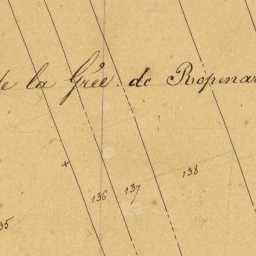 de la Grée de Ropena
136 137 138
35